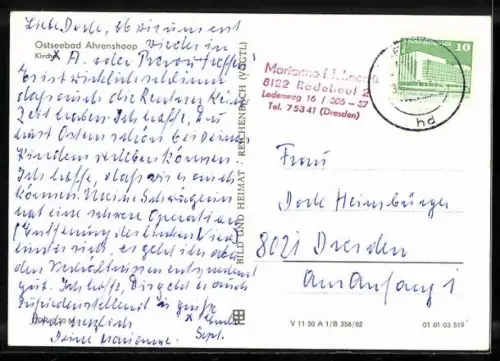 Liebe Dorle, Ob wir uns erst
Ostseebad Ahrenshoop
wieder in
Kirche
A. oder Prerow treffen?
Es ist wirklich schlimm
daß auch die Rentner keine
Zeit haben. Ich hoffe, Du
hast Ostern schön bei Deinen
Kindern verleben können.
Ich hoffe, daß wir es auch
können. Meine Schwägerin
hat eine schwere Operation
(Entfernung der linken Niere)
hinter sich, es geht ihr aber
den Verhältnissen entsprechend
gut. Ich hoffe, Dir geht es auch
zufriedenstellend
Sept.
herzlich
Deine Marianne.
BILD UND HEIMAT · REICHENBACH (VOGTL)
Marianne
8122 Radebeul 2
Ledenweg 16 / 305-37
Tel. 75341 (Dresden)
10
Frau
Dorle Heimbürger
8021 Dresden
Am Anfang 1
V 11 50 A 1/B 358/82
01 01 03 519